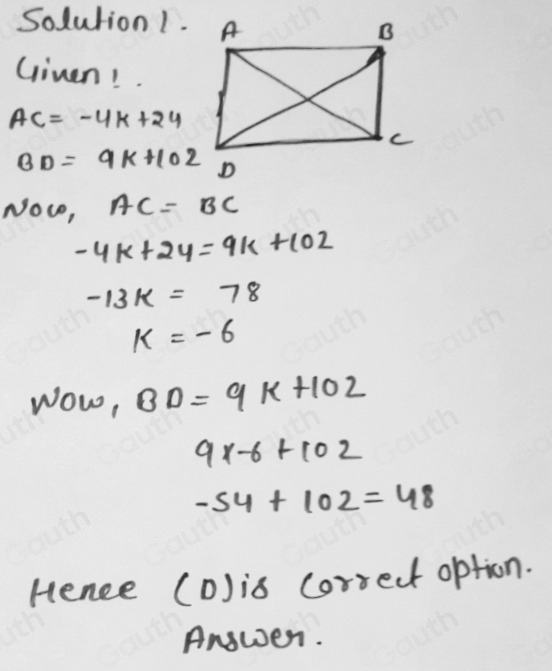 Solution!.
A
B
Given!.
AC = -4K+24
BD = 9K+102
D
C
Now, AC = BC
-4K+24=9K+102
-13K = 78
K = -6
Now, BD = 9K+102
9x-6+102
-54 + 102 = 48
Hence (D) is correct option.
Answer.
Gauth